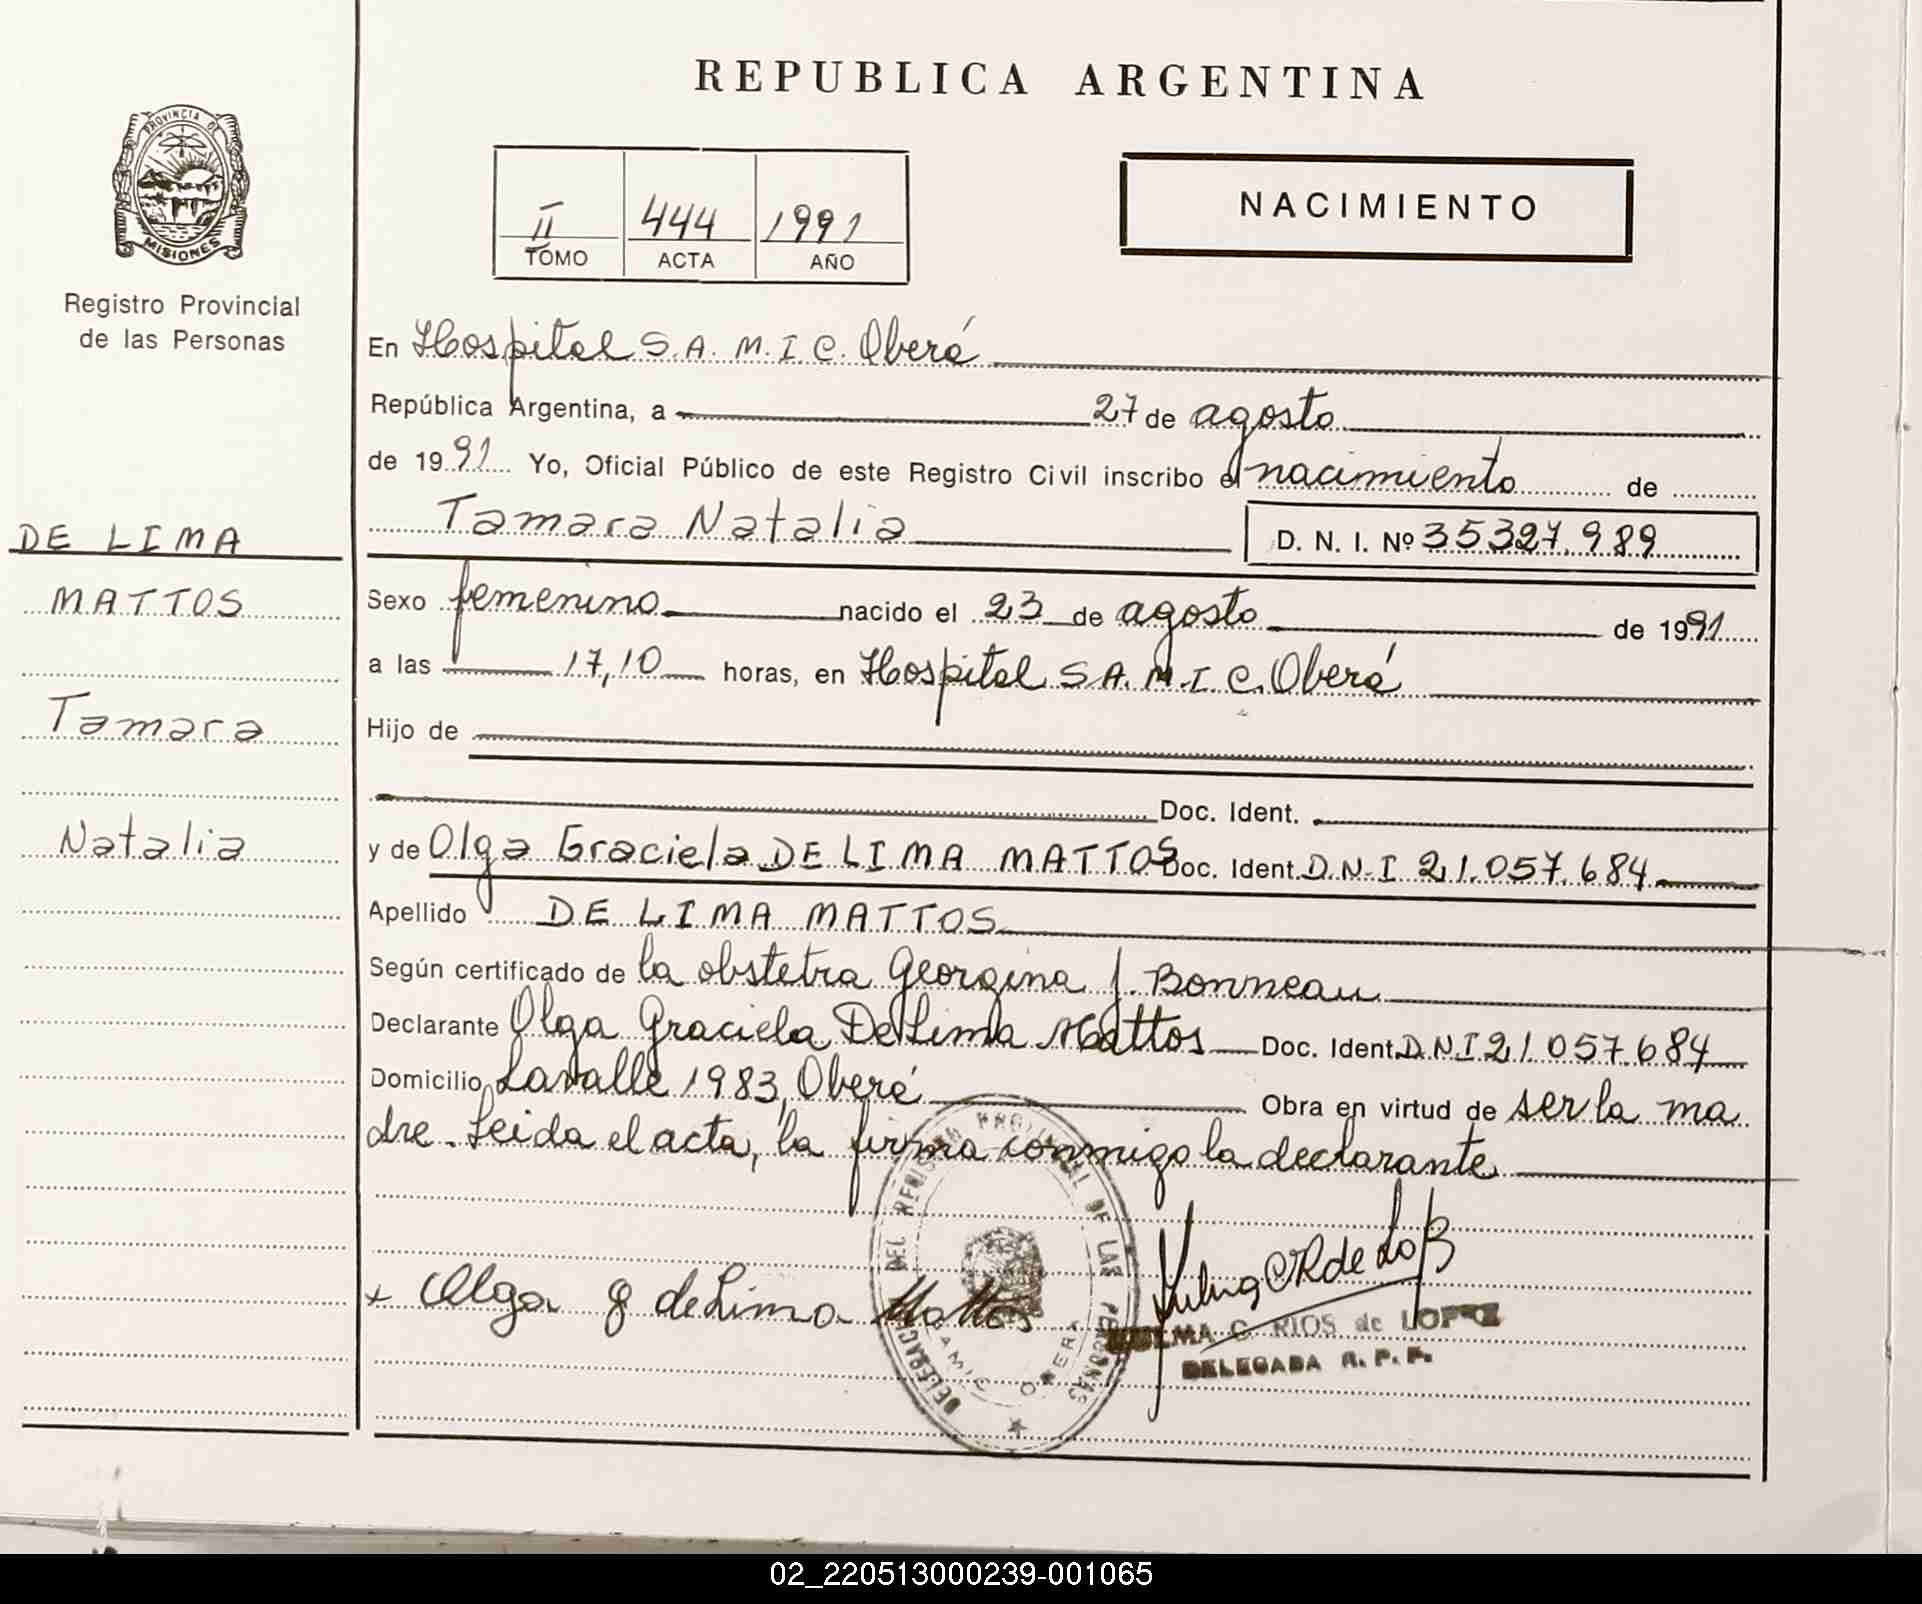 REPUBLICA ARGENTINA
PROVINCIA DE
MISIONES
Registro Provincial
de las Personas
II 444 1991
TOMO ACTA AÑO
NACIMIENTO
En Hospital S.A.M.I.C. Oberá
República Argentina, a 27 de agosto
de 1991 Yo, Oficial Público de este Registro Civil inscribo el nacimiento de
Tamara Natalia D. N. I. Nº 35327.989
DE LIMA
MATTOS
Tamara
Natalia
Sexo femenino nacido el 23 de agosto de 1991
a las 17,10 horas, en Hospital S.A.M.I.C. Oberá
Hijo de
Doc. Ident.
y de Olga Graciela DE LIMA MATTOS Doc. Ident. D.N.I 21.057.684
Apellido DE LIMA MATTOS
Según certificado de la obstetra Georgina J. Bonneau
Declarante Olga Graciela De Lima Mattos Doc. Ident. D.N.I 21.057.684
Domicilio Lavalle 1983, Oberá Obra en virtud de ser la ma
dre. Leida el acta, la firma conmigo la declarante
Olga G de Lima Mattos
DELEGACION DEL REGISTRO PROVINCIAL DE LAS PERSONAS
OBERA
C. RIOS de LOPEZ
DELEGADA R. P. P.
02_220513000239-001065